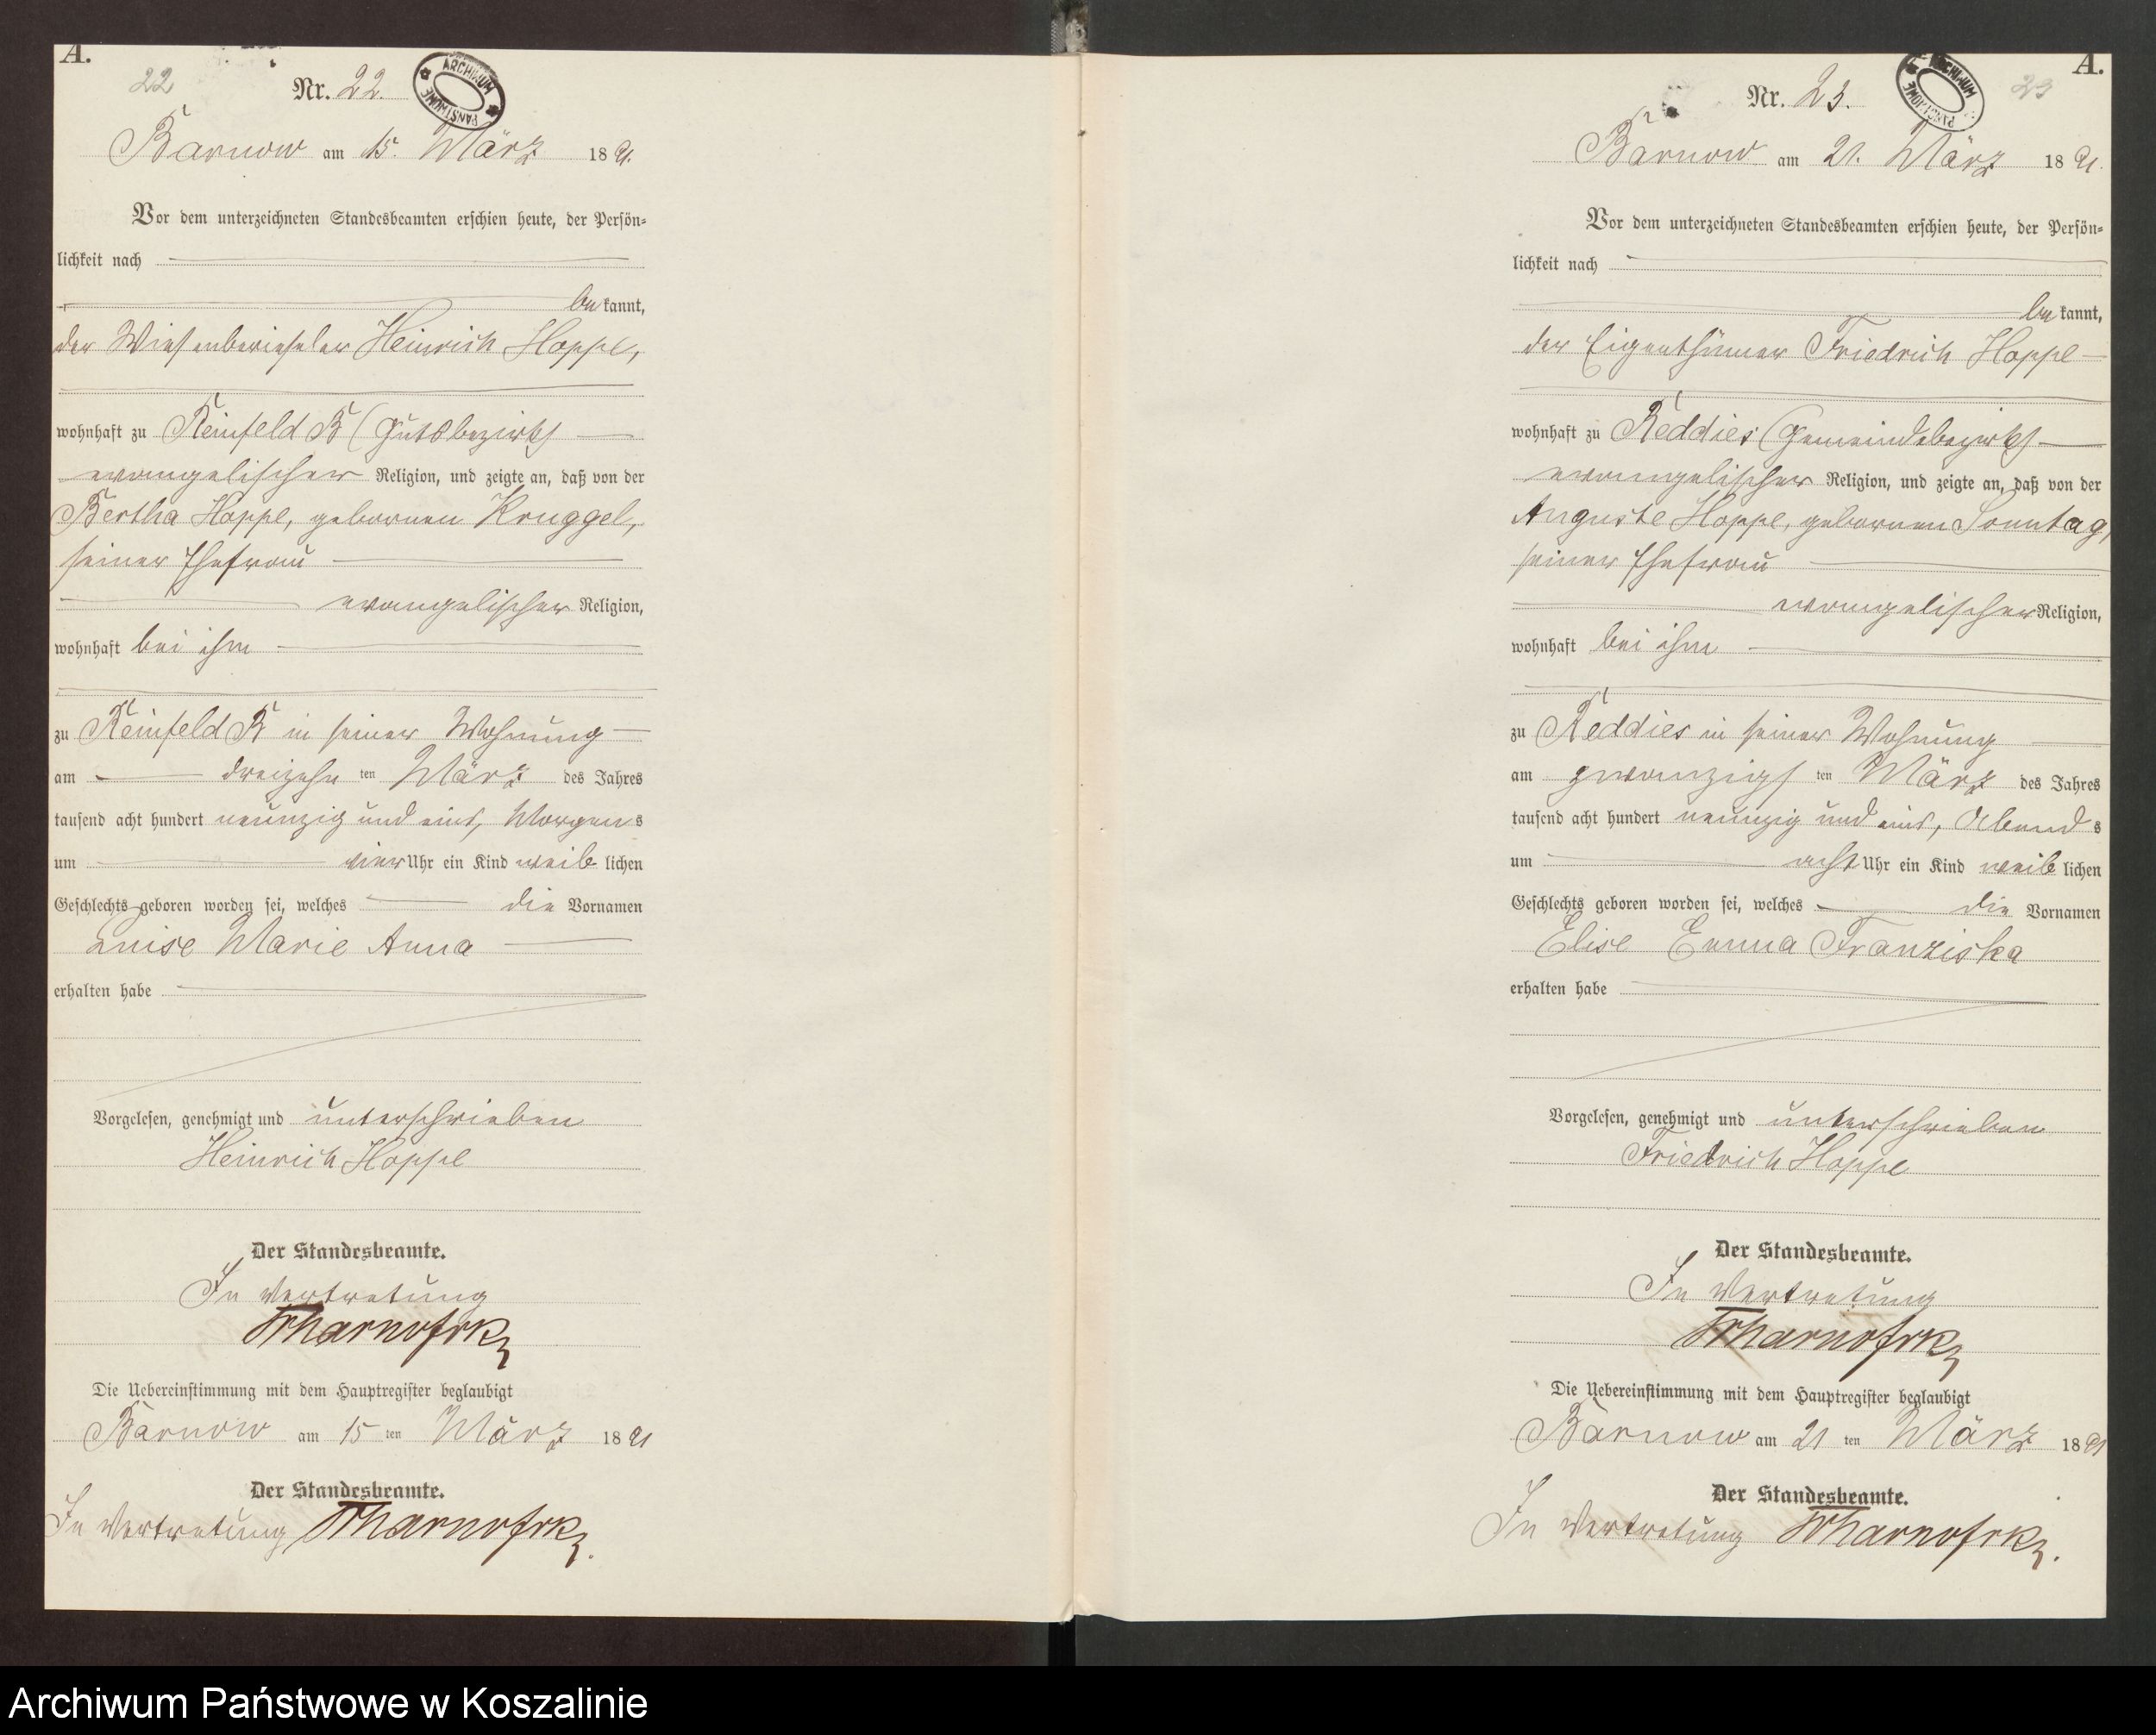 A.
22
Nr. 22.
ARCHIWUM PAŃSTWOWE
Barnow am 15. März 1891.
Vor dem unterzeichneten Standesbeamten erschien heute, der Persön-
lichkeit nach
be kannt,
der Wiesenberieseler Heinrich Hoppe,
wohnhaft zu Reinfeld B (Gutsbezirk)
evangelischer Religion, und zeigte an, daß von der
Bertha Hoppe, geborenen Kruggel,
seiner Ehefrau
evangelischer Religion,
wohnhaft bei ihm
zu Reinfeld B in seiner Wohnung
am dreizehn ten März des Jahres
tausend acht hundert neunzig und eins, Morgens
um vier Uhr ein Kind weib lichen
Geschlechts geboren worden sei, welches die Vornamen
Luise Marie Anna
erhalten habe
Vorgelesen, genehmigt und unterschrieben
Heinrich Hoppe
Der Standesbeamte.
In Vertretung
Die Uebereinstimmung mit dem Hauptregister beglaubigt
Barnow am 15 ten März 1891
Der Standesbeamte.
In Vertretung
A.
23
Nr. 23.
ARCHIWUM PAŃSTWOWE
Barnow am 21. März 1891.
Vor dem unterzeichneten Standesbeamten erschien heute, der Persön-
lichkeit nach
be kannt,
der Eigenthümer Friedrich Hoppe
wohnhaft zu Reddies (Gemeindebezirk)
evangelischer Religion, und zeigte an, daß von der
Auguste Hoppe, geborenen Sonntag,
seiner Ehefrau
evangelischer Religion,
wohnhaft bei ihm
zu Reddies in seiner Wohnung
am zwanzigs ten März des Jahres
tausend acht hundert neunzig und eins, Abends
um acht Uhr ein Kind weib lichen
Geschlechts geboren worden sei, welches die Vornamen
Elise Emma Franziska
erhalten habe
Vorgelesen, genehmigt und unterschrieben
Friedrich Hoppe
Der Standesbeamte.
In Vertretung
Die Uebereinstimmung mit dem Hauptregister beglaubigt
Barnow am 21 ten März 1891
Der Standesbeamte.
In Vertretung
Archiwum Państwowe w Koszalinie